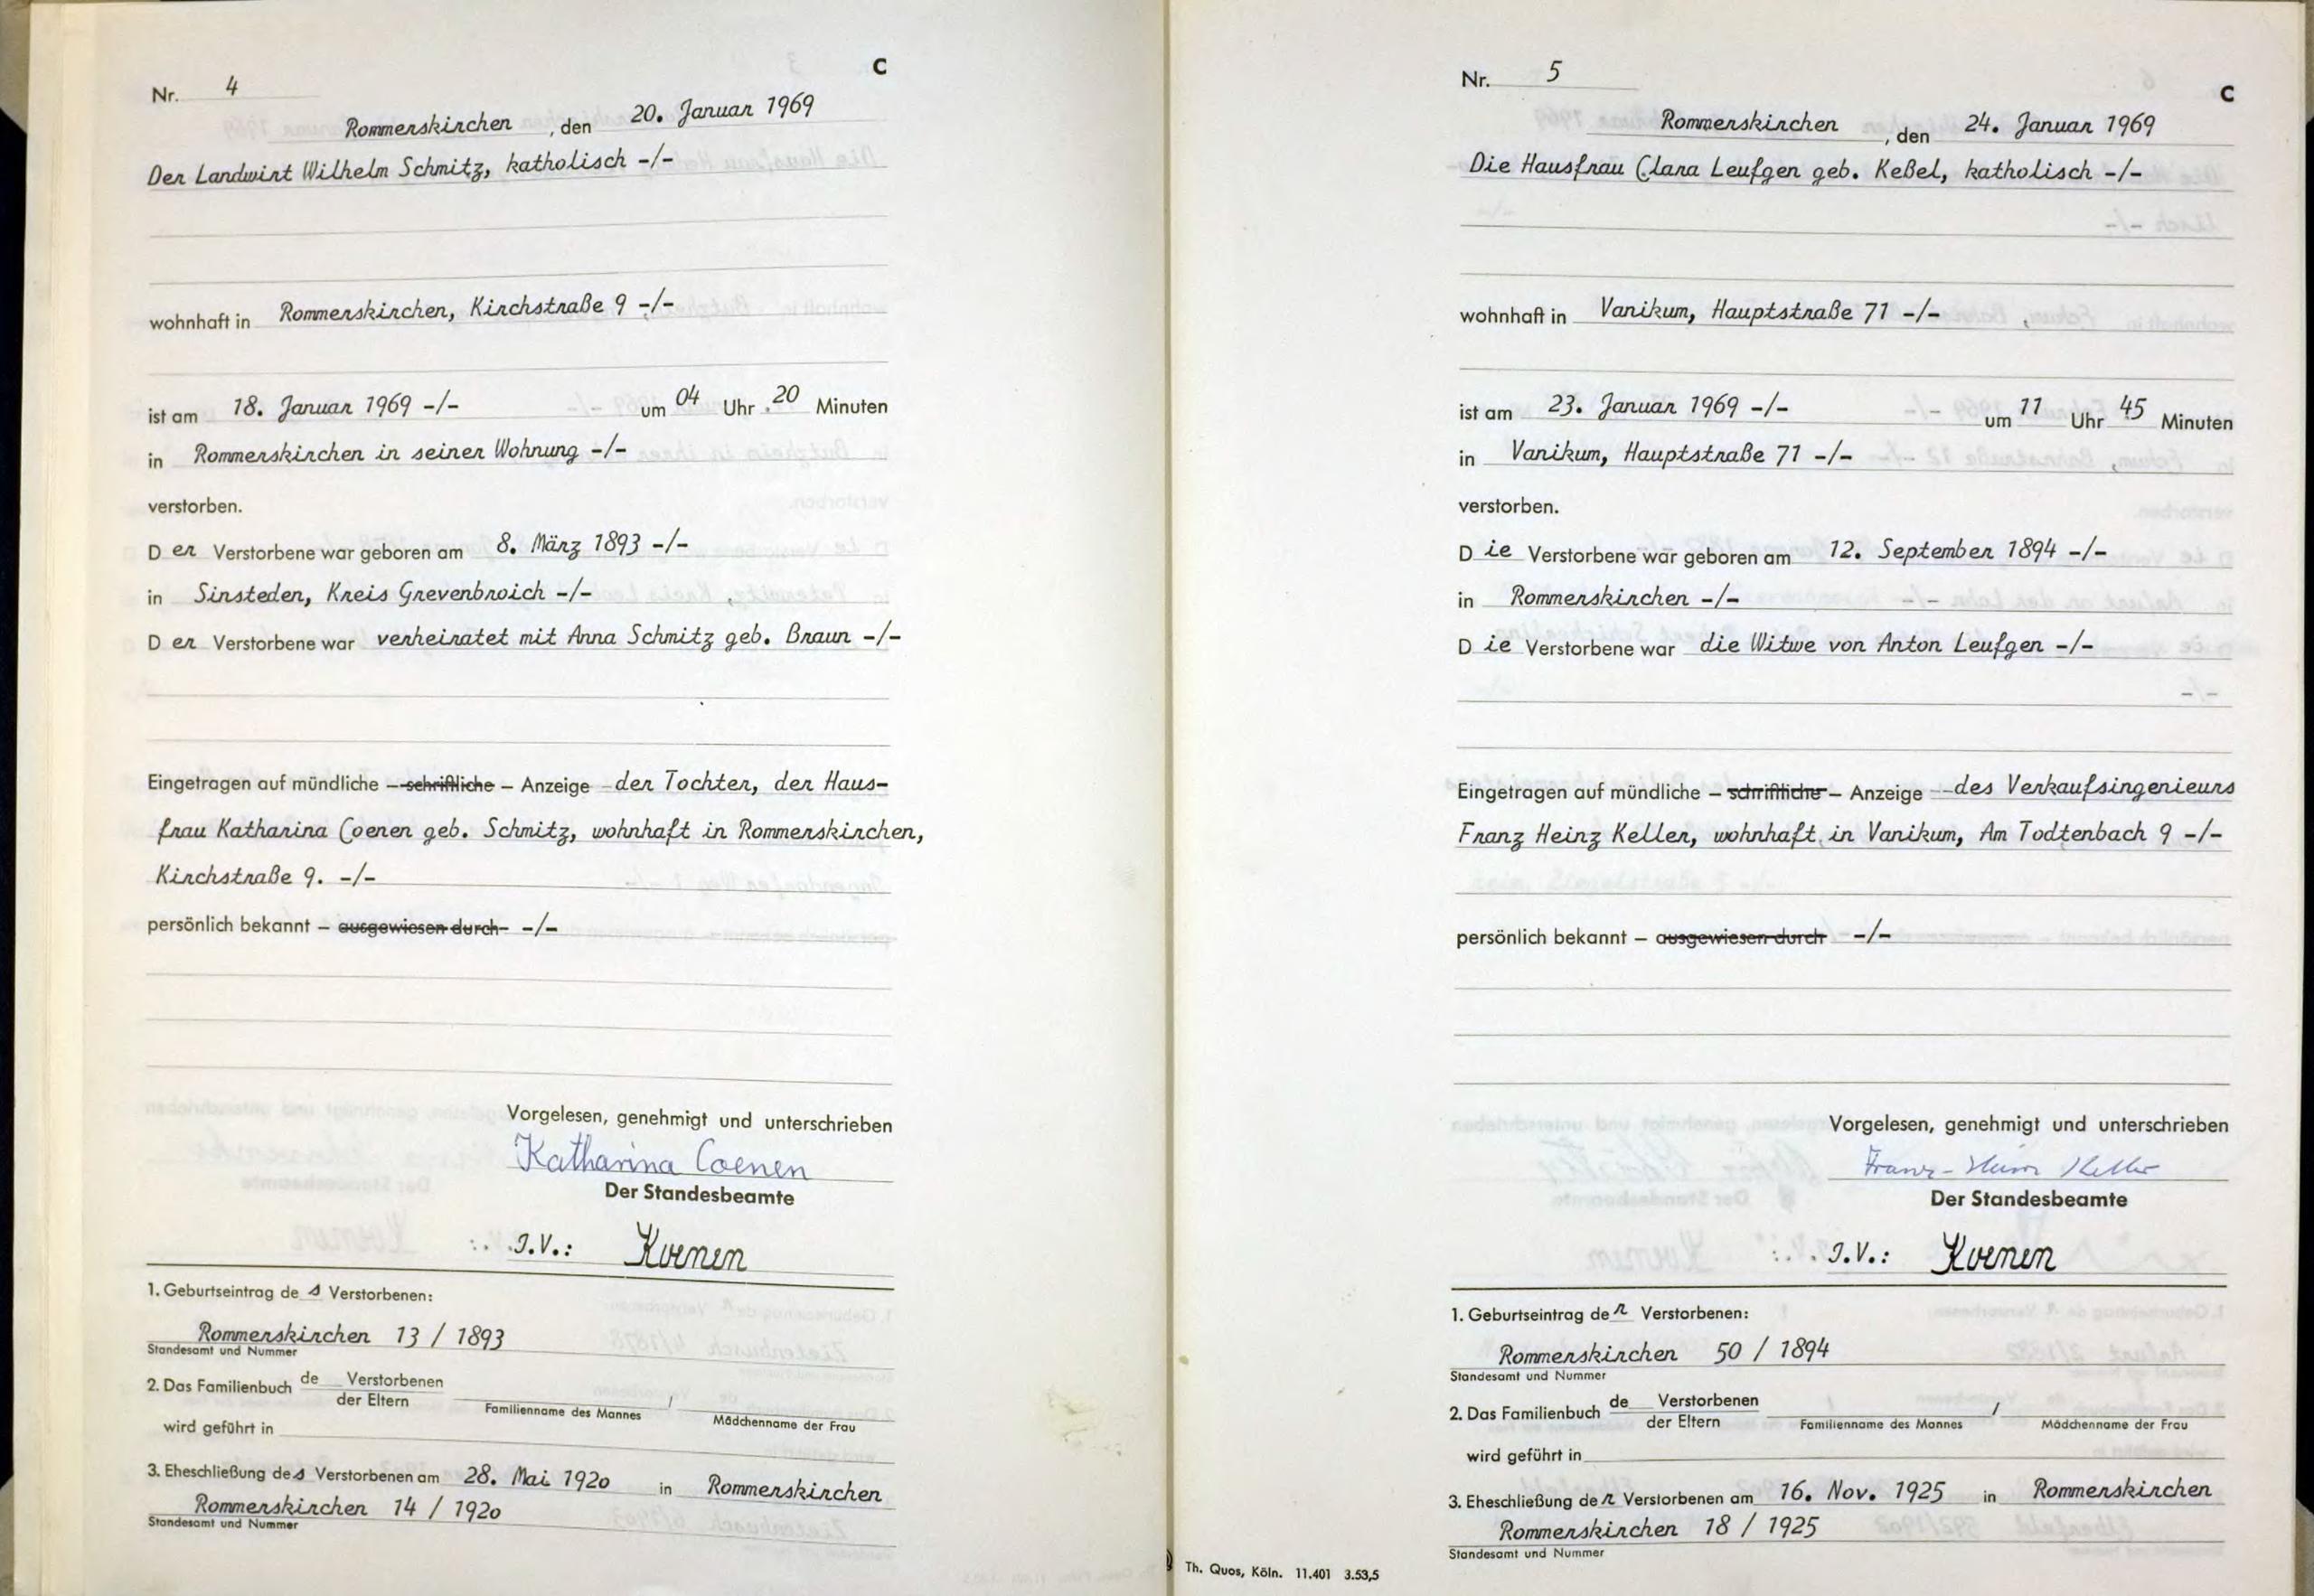 Nr. 4
C
Rommerskirchen, den 20. Januar 1969
Der Landwirt Wilhelm Schmitz, katholisch -/-
wohnhaft in Rommerskirchen, Kirchstraße 9 -/-
ist am 18. Januar 1969 -/- um 04 Uhr 20 Minuten
in Rommerskirchen in seiner Wohnung -/-
verstorben.
Der Verstorbene war geboren am 8. März 1893 -/-
in Sinsteden, Kreis Grevenbroich -/-
Der Verstorbene war verheiratet mit Anna Schmitz geb. Braun -/-
Eingetragen auf mündliche – schriftliche – Anzeige der Tochter, der Haus-
frau Katharina Coenen geb. Schmitz, wohnhaft in Rommerskirchen,
Kirchstraße 9. -/-
persönlich bekannt – ausgewiesen durch -/-
Vorgelesen, genehmigt und unterschrieben
Katharina Coenen
Der Standesbeamte
J.V.: Koenen
1. Geburtseintrag des Verstorbenen:
Rommerskirchen 13 / 1893
Standesamt und Nummer
2. Das Familienbuch de Verstorbenen
der Eltern
Familienname des Mannes / Mädchenname der Frau
wird geführt in
3. Eheschließung des Verstorbenen am 28. Mai 1920 in Rommerskirchen
Rommerskirchen 14 / 1920
Standesamt und Nummer
Nr. 5
C
Rommerskirchen, den 24. Januar 1969
Die Hausfrau Clara Leufgen geb. Keßel, katholisch -/-
wohnhaft in Vanikum, Hauptstraße 71 -/-
ist am 23. Januar 1969 -/- um 11 Uhr 45 Minuten
in Vanikum, Hauptstraße 71 -/-
verstorben.
Die Verstorbene war geboren am 12. September 1894 -/-
in Rommerskirchen -/-
Die Verstorbene war die Witwe von Anton Leufgen -/-
Eingetragen auf mündliche – schriftliche – Anzeige des Verkaufsingenieurs
Franz Heinz Keller, wohnhaft in Vanikum, Am Todtenbach 9 -/-
persönlich bekannt – ausgewiesen durch -/-
Vorgelesen, genehmigt und unterschrieben
Franz-Heinz Keller
Der Standesbeamte
J.V.: Koenen
1. Geburtseintrag der Verstorbenen:
Rommerskirchen 50 / 1894
Standesamt und Nummer
2. Das Familienbuch de Verstorbenen
der Eltern
Familienname des Mannes / Mädchenname der Frau
wird geführt in
3. Eheschließung der Verstorbenen am 16. Nov. 1925 in Rommerskirchen
Rommerskirchen 18 / 1925
Standesamt und Nummer
Th. Quos, Köln. 11.401 3.53,5